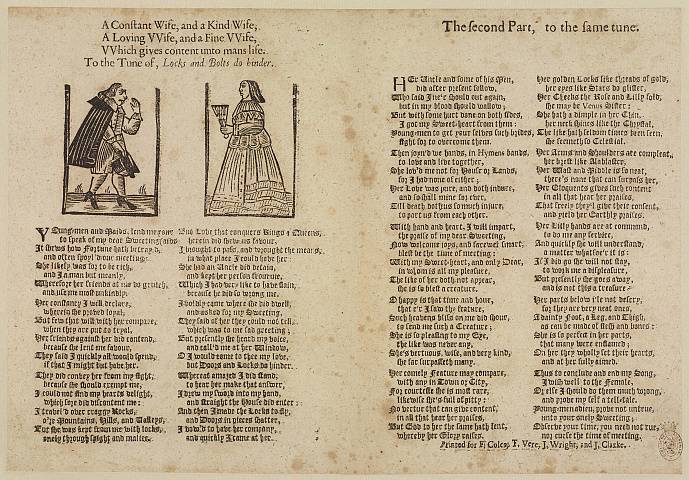 A Constant Wife, and a Kind Wife,
A Loving VVife, and a Fine VVife,
VVhich gives content unto mans life.
To the Tune of, Locks and Bolts do hinder.
Young men and Maids, lend me your
to speak of my dear Sweeting,
It shews how Fortune hath betray'd,
and often spoyl'd our meeting:
She likely was for to be rich,
and I a man but meanly,
Wherefore her friends at me do grutch,
and use me most unkindly.
Her constancy I will declare,
wherein she proved loyal;
But few that will with her compare,
when they are put to tryal.
Her friends against her did contend,
because she lent me favour,
They said I quickly all would spend,
if that I might but have her.
They did convey her from my sight,
because she should exempt me,
I could not find my hearts delight,
which now did discontent me:
I travel'd over craggy Rocks,
o're Mountains, Hills, and Valleys,
But she was kept from me with locks,
onely through spight and malice.
But Love that conquers Kings & Queens,
herein did shew us favour,
I wrought to pass, and wrought the means,
in what place I could have her
She had an Uncle did detain,
and kept her person from me,
Which I had very like to have slain,
because he did so wrong me.
I boldly came where she did dwell,
and asked for my Sweeting,
They said of her they could not tell,
which was to me sad greeting;
But presently she heard my voice,
and call'd me at her Window,
O I would come to thee my love,
but Doors and Locks do hinder.
Whereat amazed I did stand,
to hear her make that answer,
I drew my sword into my hand,
and straight the House did enter:
And then I made the Locks to fly,
and Doors in pieces shatter,
I vow'd to have her company,
and quickly I came at her.
The second Part, to the same tune.
HEr Uncle and some of his Men,
did after present follow,
Who said I ne'r should out again,
but in my blood should wallow;
But with some hurt done on both sides,
I got my Sweet-heart from them:
Young-men to get your selves such brides,
fight for to overcome them.
Then joyn'd we hands, in Hymens bands,
to love and live together,
She lov'd me not for House or Lands,
for I had none of either;
Her Love was pure, and doth indure,
and so shall mine for ever,
Till death doth us so much injure,
to part us from each other.
With hand and heart, I will impart,
the praise of my dear Sweeting,
Now welcome joys, and farewel smart,
blest be the time of meeting:
With my Sweet-heart, and only Dear,
in whom is all my pleasure,
The like of her doth not appear,
she is so blest a creature.
O happy is that time and hour,
that e'r I saw thy feature,
Such heavens bliss on me did shour,
to send me such a Creature;
She is so pleasing to my Eye,
the like was never any,
She's vertuous, wife, and very kind,
she far surpasseth many.
Her comely Feature may compare,
with any in Town or City,
For courtesie she is most rare,
likewise she's full of pitty:
No vertue that can give content,
in all that hear her praises,
But God to her the same hath lent,
whereby her Glory raises.
Her golden Locks like threads of gold,
her eyes like Stars do glister,
Her Cheeks the Rose and Lilly fold,
she may be Venus Sister:
She hath a dimple in her Chin,
her neck shines like the Chrystal,
The like hath seldom times been seen,
she seemeth so Celestial.
Her Arms and Shoulders are compleat,
her brest like Alablaster,
Her Wast and Middle is so neat,
there's none that can surpass her,
Her Eloquents gives such content
in all that hear her praises,
That freely they'l give their consent,
and yield her Earthly praises.
Her lilly hands are at command,
to do me any service,
And quickly she will understand,
a matter whatsoe'r it is:
If I bid go she will not stay,
to work me a displeasure,
But presently she goes away,
and is not this a treasure
Her parts below i'le not descry,
for they are very neat ones,
A dainty Foot, a Leg, and Thigh,
as can be made of flesh and bones:
She is so perfect in her parts,
that many were enflamed;
On her they wholly set their hearts,
and at her fully aimed.
Thus to conclude and end my Song,
I wish well to the Female,
Or else I should do them much wrong,
and prove my self a tell-tale.
Young-men adieu, prove not untrue,
unto your onely Sweeting;
Observe your time, you need not rue,
nor curse the time of meeting.
Printed for F. Coles, T. Vere, J. Wright, and J. Clarke.